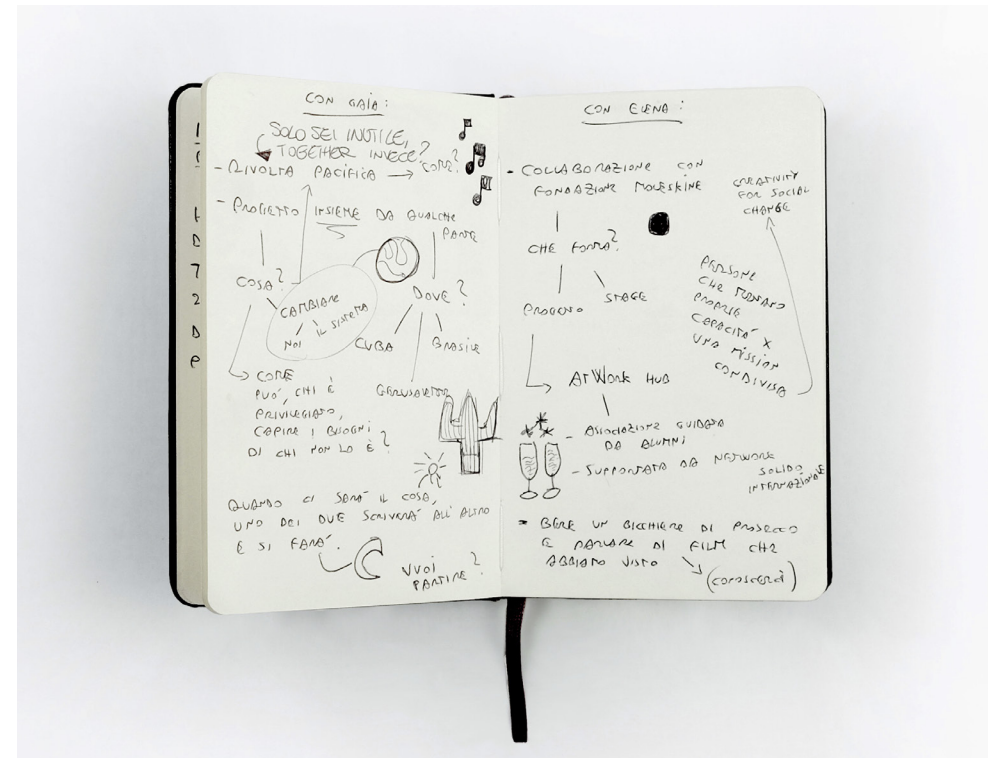 CON GAIA:
SOLO SEI INUTILE,
TOGETHER INVECE?
- RIVOLTA PACIFICA → COME?
- PROGETTO INSIEME DA QUALCHE
PARTE
COSA?
CAMBIARE
NOI IL SISTEMA
DOVE?
CUBA BRASILE
GERUSALEMME
COME
PUÒ, CHI È
PRIVILEGIATO,
CAPIRE I BISOGNI
DI CHI NON LO È?
QUANDO CI SARÀ IL COSA,
UNO DEI DUE SCRIVERÀ ALL'ALTRO
E SI FARÀ.
VUOI
PARTIRE?
CON ELENA:
- COLLABORAZIONE CON
FONDAZIONE MOLESKINE
CREATIVITY
FOR SOCIAL
CHANGE
CHE FORMA?
PROGETTO
STAGE
PERSONE
CHE METTANO
PROPRIE
CAPACITÀ X
UNA MISSION
CONDIVISA
ATWORK HUB
- ASSOCIAZIONE GUIDATA
DA ALUMNI
- SUPPORTATA DA NETWORK
SOLIDO
INTERNAZIONALE
- BERE UN BICCHIERE DI PROSECCO
E PARLARE DI FILM CHE
ABBIAMO VISTO
(CONOSCERCI)